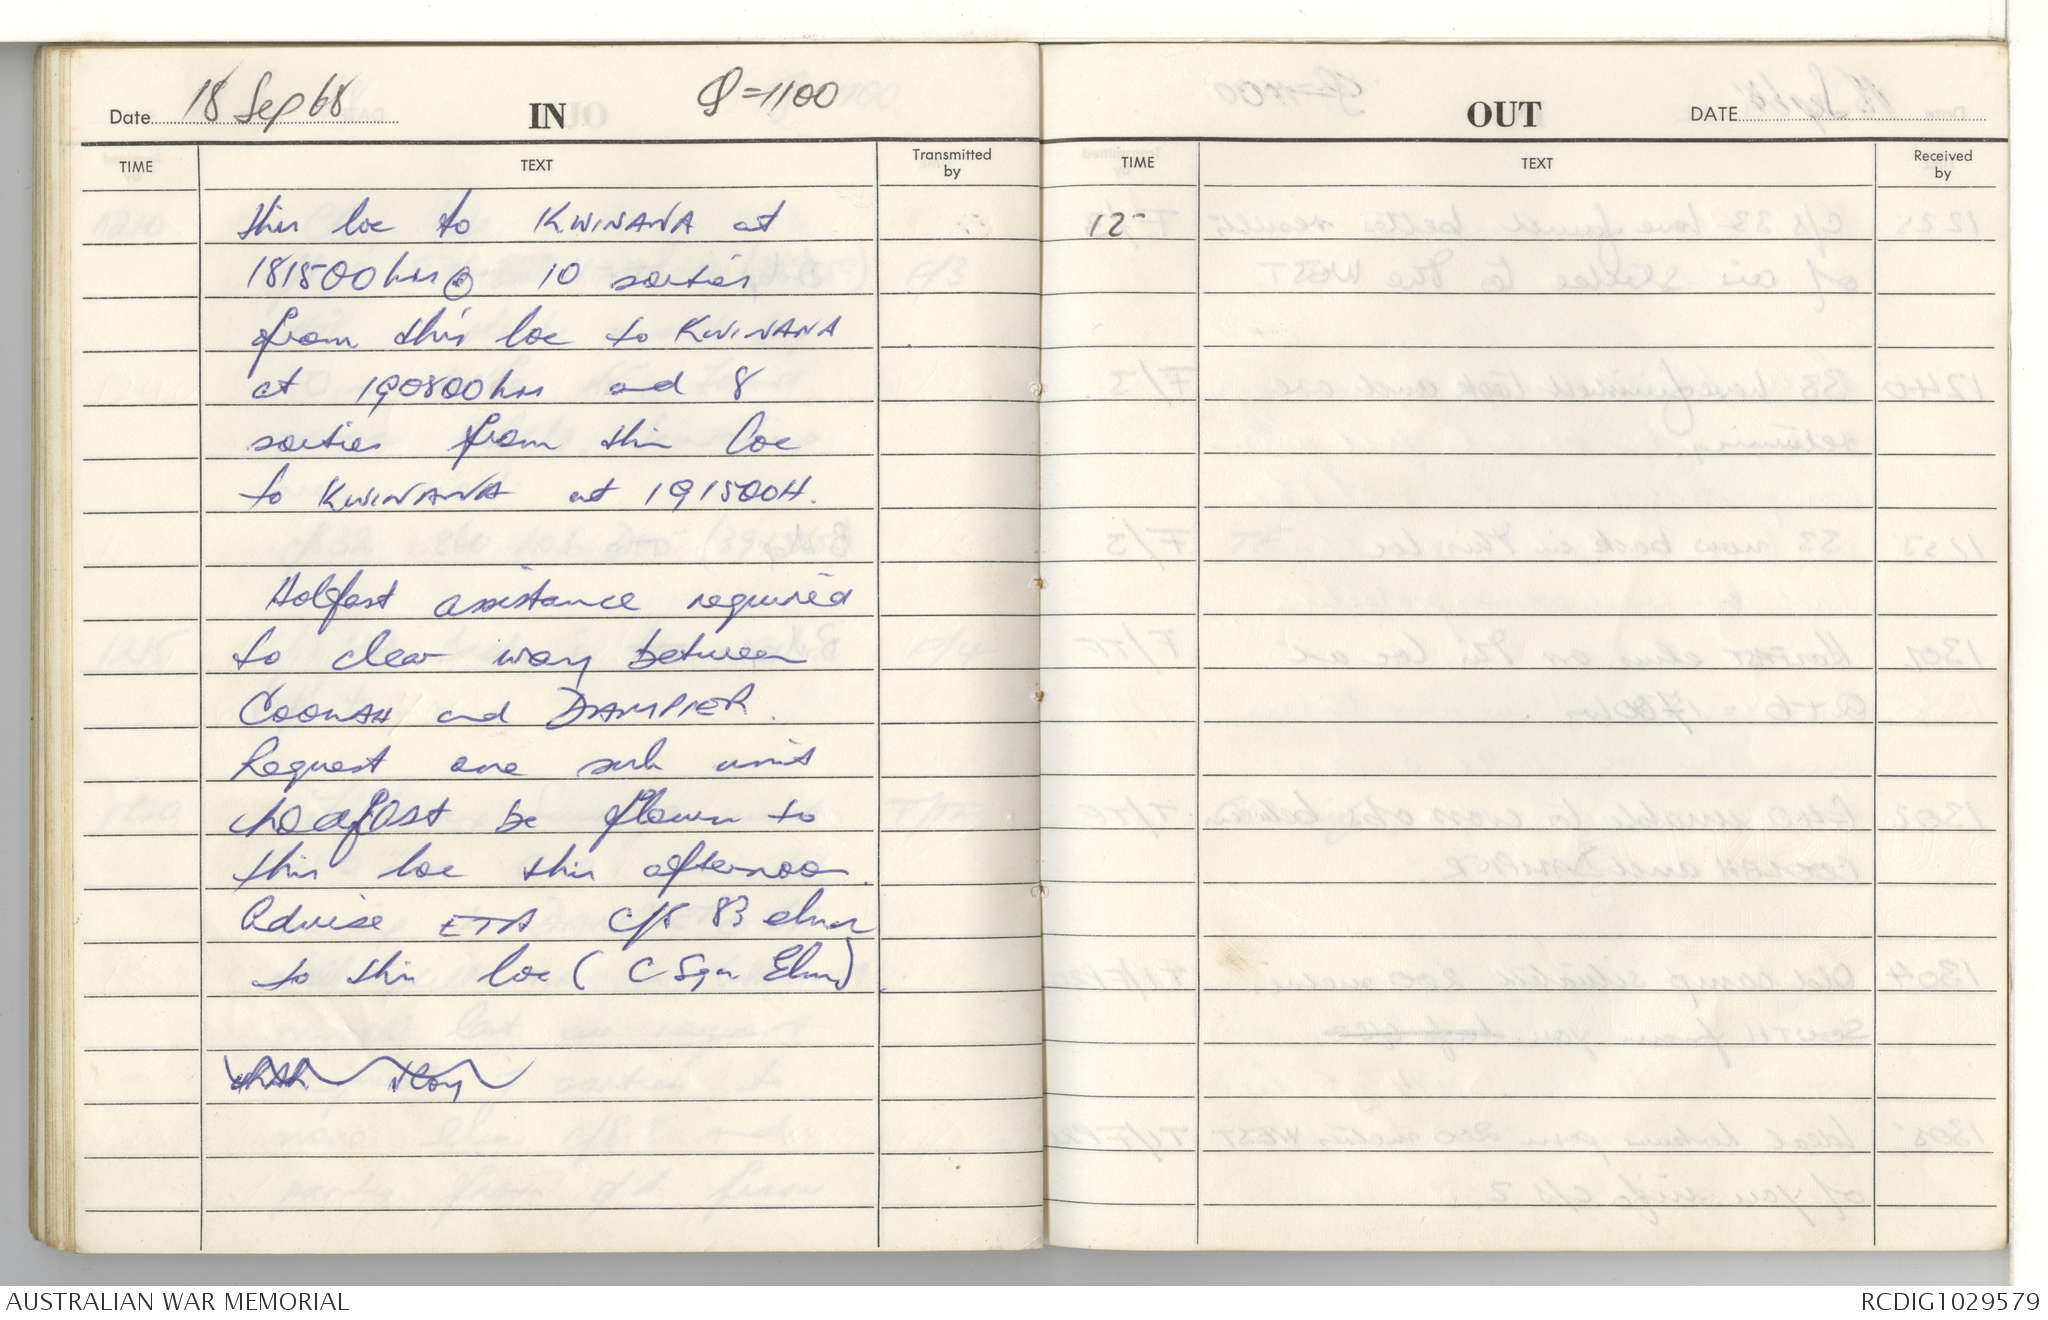 Date 18 Sep 68
IN
Q=1100
TIME
TEXT
Transmitted by
this loc to KWINANA at
181500 hrs 10 sorties
from this loc to KWINANA
at 190800 hrs and 8
sorties from this loc
to KWINANA at 191500H.
Holdfast assistance required
to clear way between
COONAH and DAMPIER.
Request one sub unit
holdfast be flown to
this loc this afternoon.
Advise ETA C/S 83 elms
to this loc (C Sqn Elms)
OUT
DATE
TIME
TEXT
Received by
12
AUSTRALIAN WAR MEMORIAL
RCDIG1029579